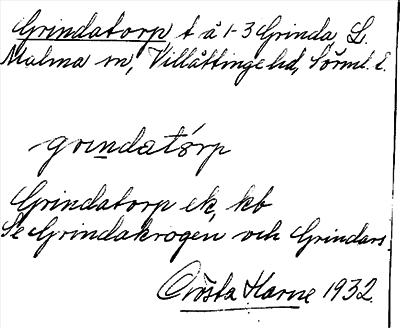 Grindatorp t å 1-3 Grinda L.
Malma sn, Villåttinge hd, Sörml. l.
grindatórp
Grindatorp ek, kb
Se Grindakrogen och Grindars.
Harne 1932.